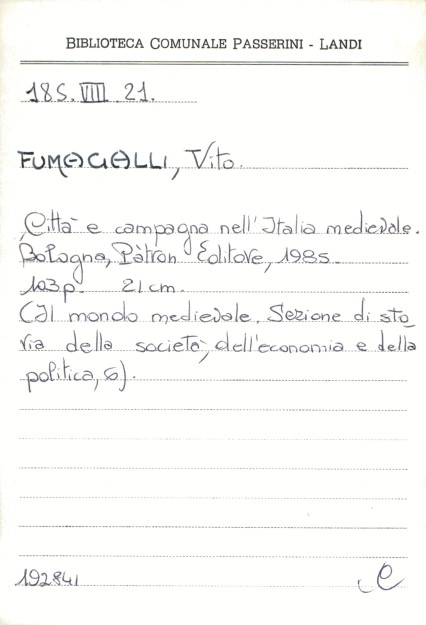 BIBLIOTECA COMUNALE PASSERINI - LANDI
18S.VIII.21.
FUMAGALLI, Vito.
Città e campagna nell'Italia medievale.
Bologna, Pàtron Editore, 1985.
103p. 21 cm.
(Il mondo medievale. Sezione di sto_
ria della società, dell'economia e della
politica, 6).
192841
e